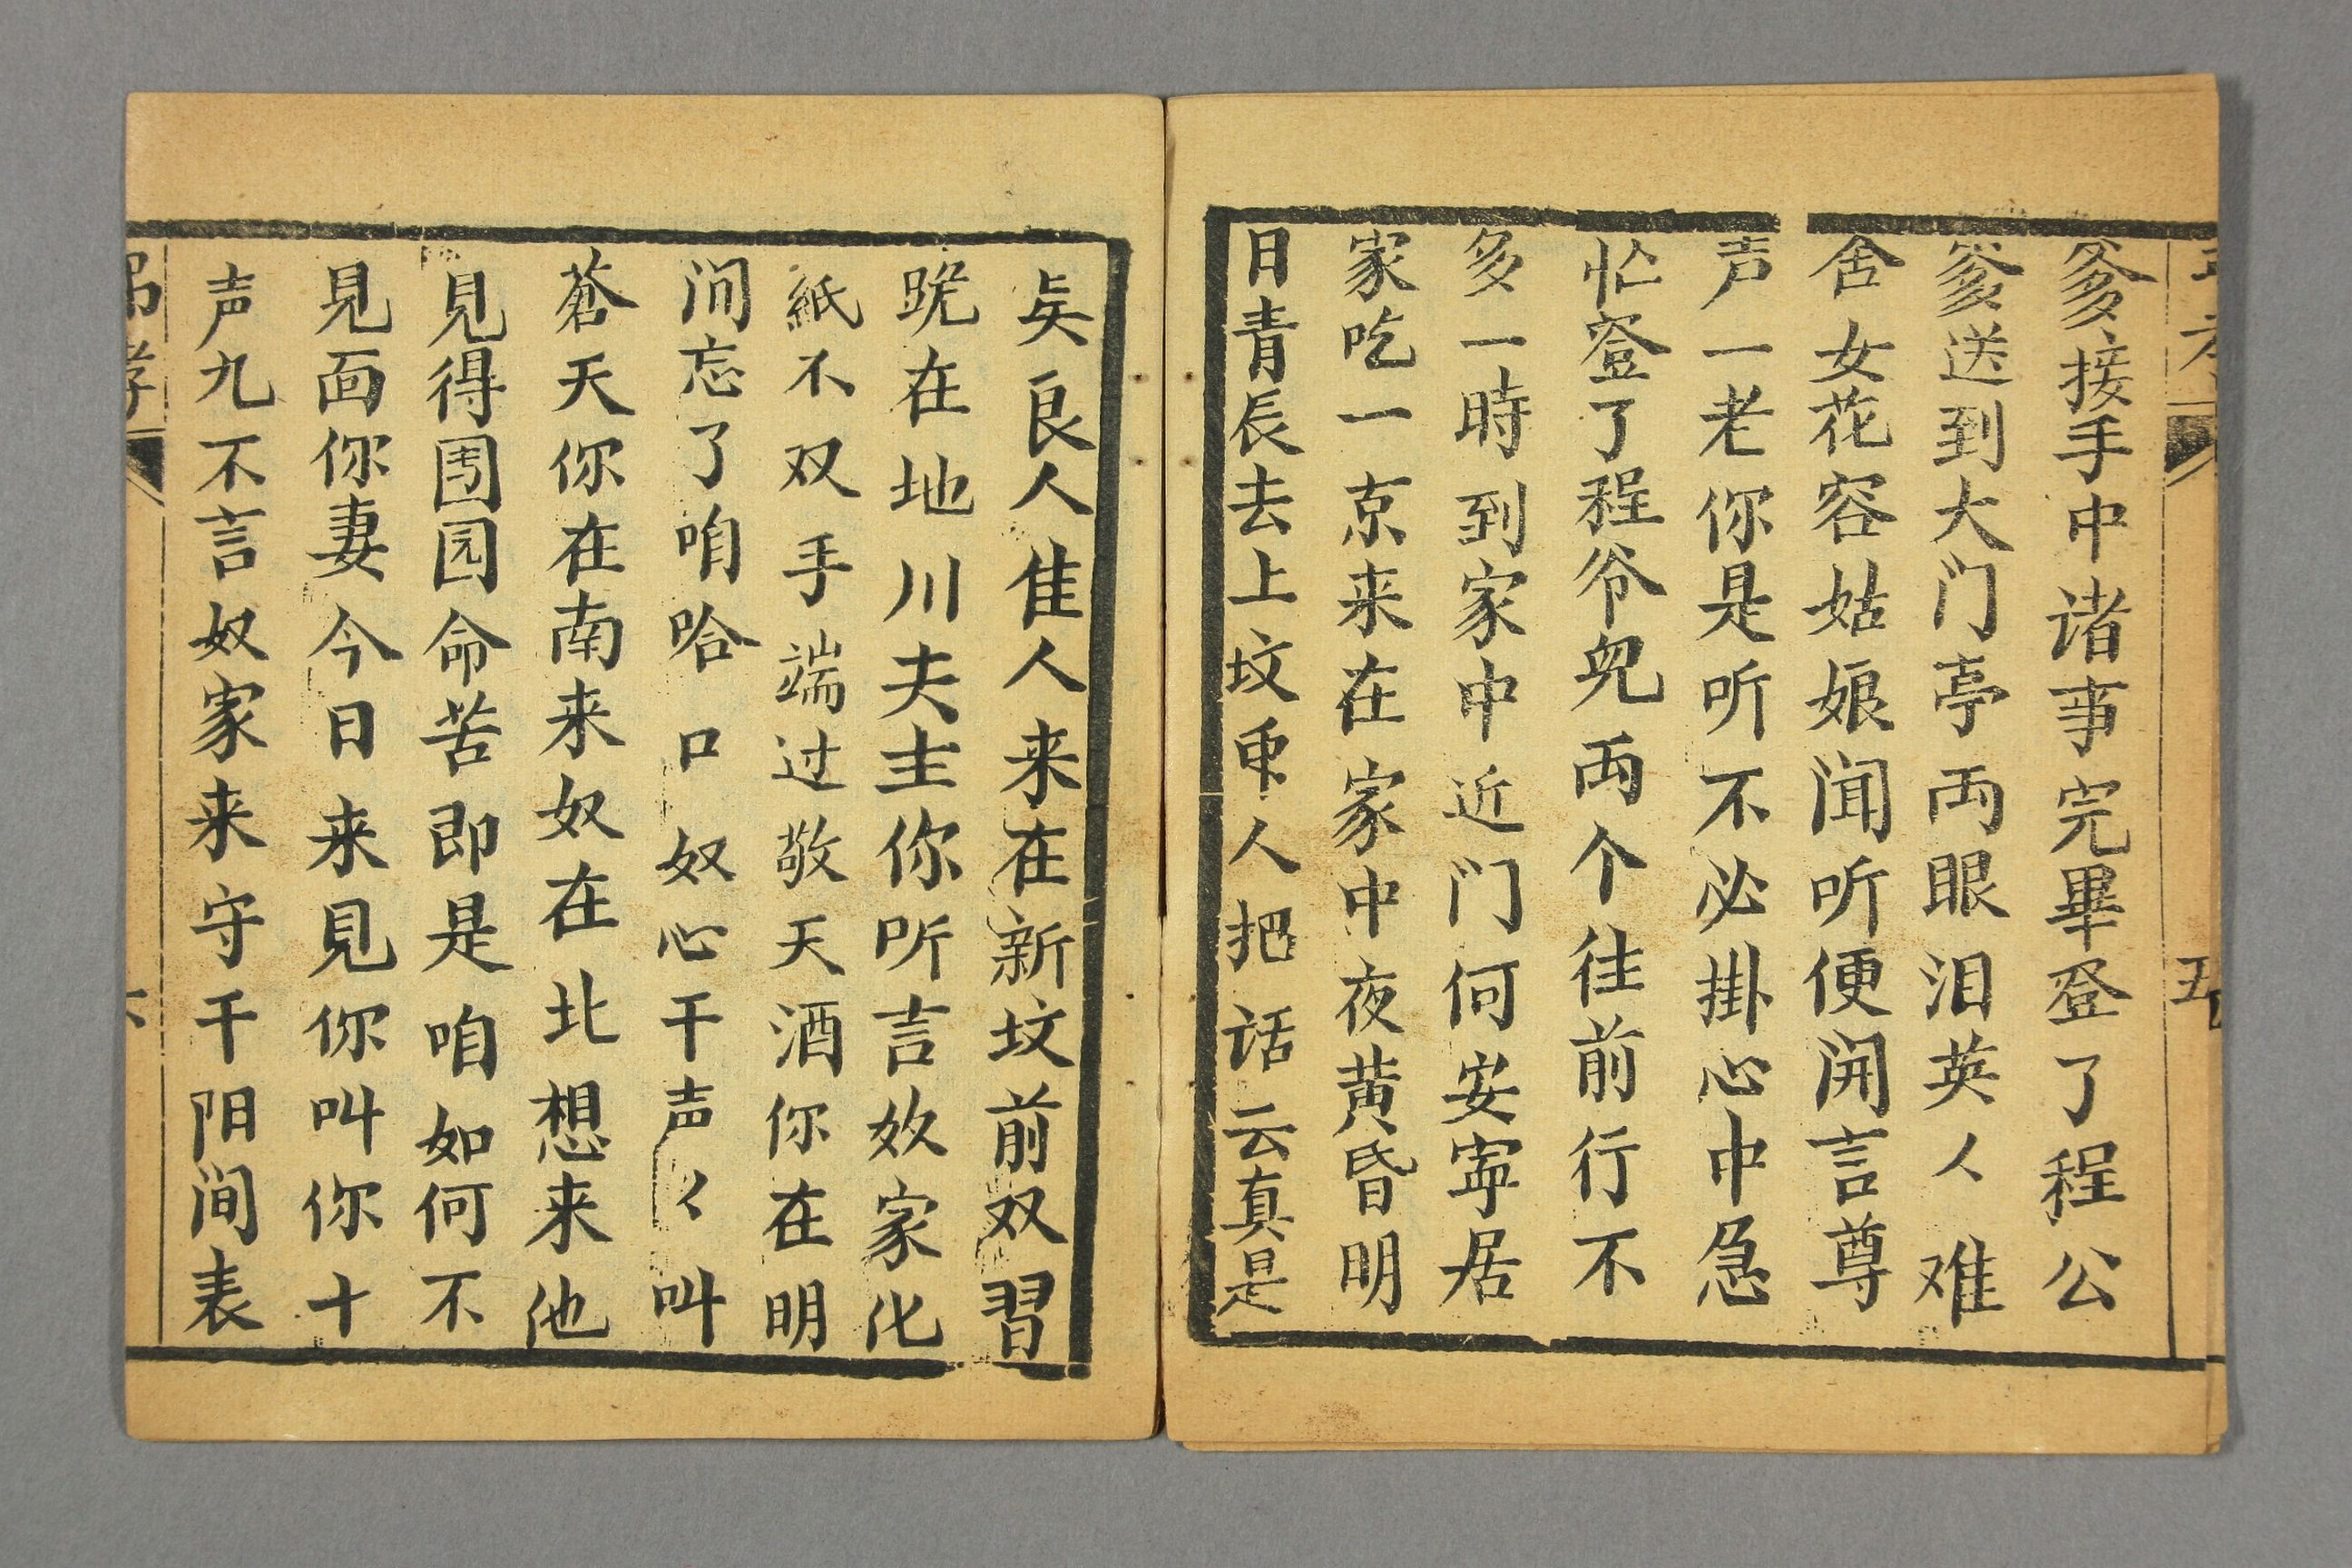 爹接手中诸事完畢登了程公
爹送到大门亭両眼泪英人难
舍女花容姑娘闻听便闲言尊
声一老你是听不必掛心中急
忙登了程爷児両个往前行不
多一時到家中近门何安寜居
家吃一京来在家中夜黄昏明
日青辰去上坟人把话云真是
五
矣良人隹人来在新坟前双習
跪在地川夫主你听言奴家化
紙不双手端过敬天酒你在明
间忘了咱哈口奴心干声〻叫
蒼天你在南来奴在北想来他
見得团园命苦即是咱如何不
見面你妻今日来見你叫你十
声九不言奴家来守干阳间表